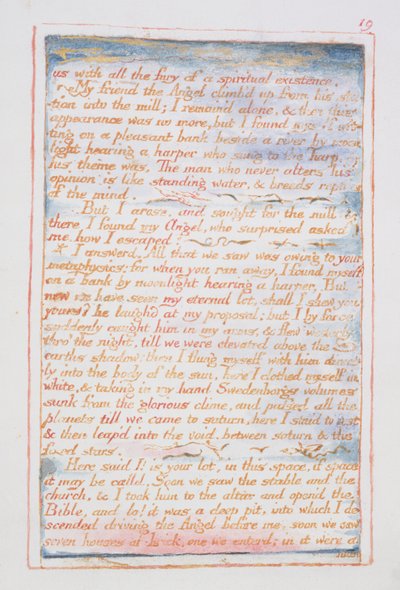 19
us with all the fury of a spiritual existence.
My friend the Angel climb'd up from his sta-
tion into the mill; I remain'd alone, & then this
appearance was no more, but I found myself sit-
ting on a pleasant bank beside a river by moon
light hearing a harper who sung to the harp, &
his theme was, The man who never alters his
opinion is like standing water, & breeds reptiles
of the mind.
But I arose, and sought for the mill &
there I found my Angel, who surprised asked
me how I escaped?
I answerd, All that we saw was owing to your
metaphysics: for when you ran away, I found myself
on a bank by moonlight hearing a harper, But
now we have seen my eternal lot, shall I shew you
yours? he laughd at my proposal; but I by force
suddenly caught him in my arms, & flew westerly
thro' the night, till we were elevated above the
earths shadow: then I flung myself with him direct-
ly into the body of the sun, here I clothed myself in
white, & taking in my hand Swedenborgs volumes
sunk from the glorious clime, and passed all the
planets till we came to saturn, here I staid to rest
& then leap'd into the void, between saturn & the
fixed stars.
Here said I! is your lot, in this space, if space
it may be calld, Soon we saw the stable and the
church, & I took him to the altar and open'd the
Bible, and lo! it was a deep pit, into which I de-
scended driving the Angel before me, soon we saw
seven houses of brick, one we enterd; in it were a